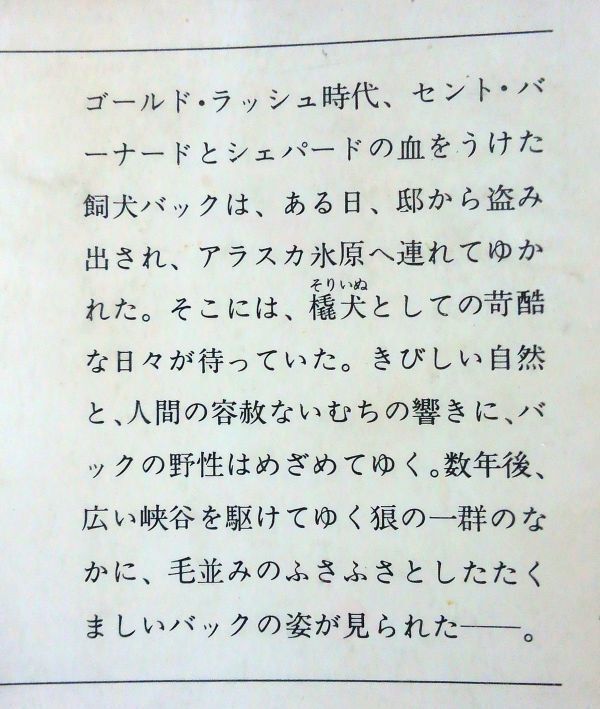 ゴールド・ラッシュ時代、セント・バ
ーナードとシェパードの血をうけた
飼犬バックは、ある日、邸から盗み
出され、アラスカ氷原へ連れてゆか
れた。そこには、橇犬としての苛酷
そりいぬ
な日々が待っていた。きびしい自然
と、人間の容赦ないむちの響きに、バ
ックの野性はめざめてゆく。数年後、
広い峡谷を駆けてゆく狼の一群のな
かに、毛並みのふさふさとしたたく
ましいバックの姿が見られた──。